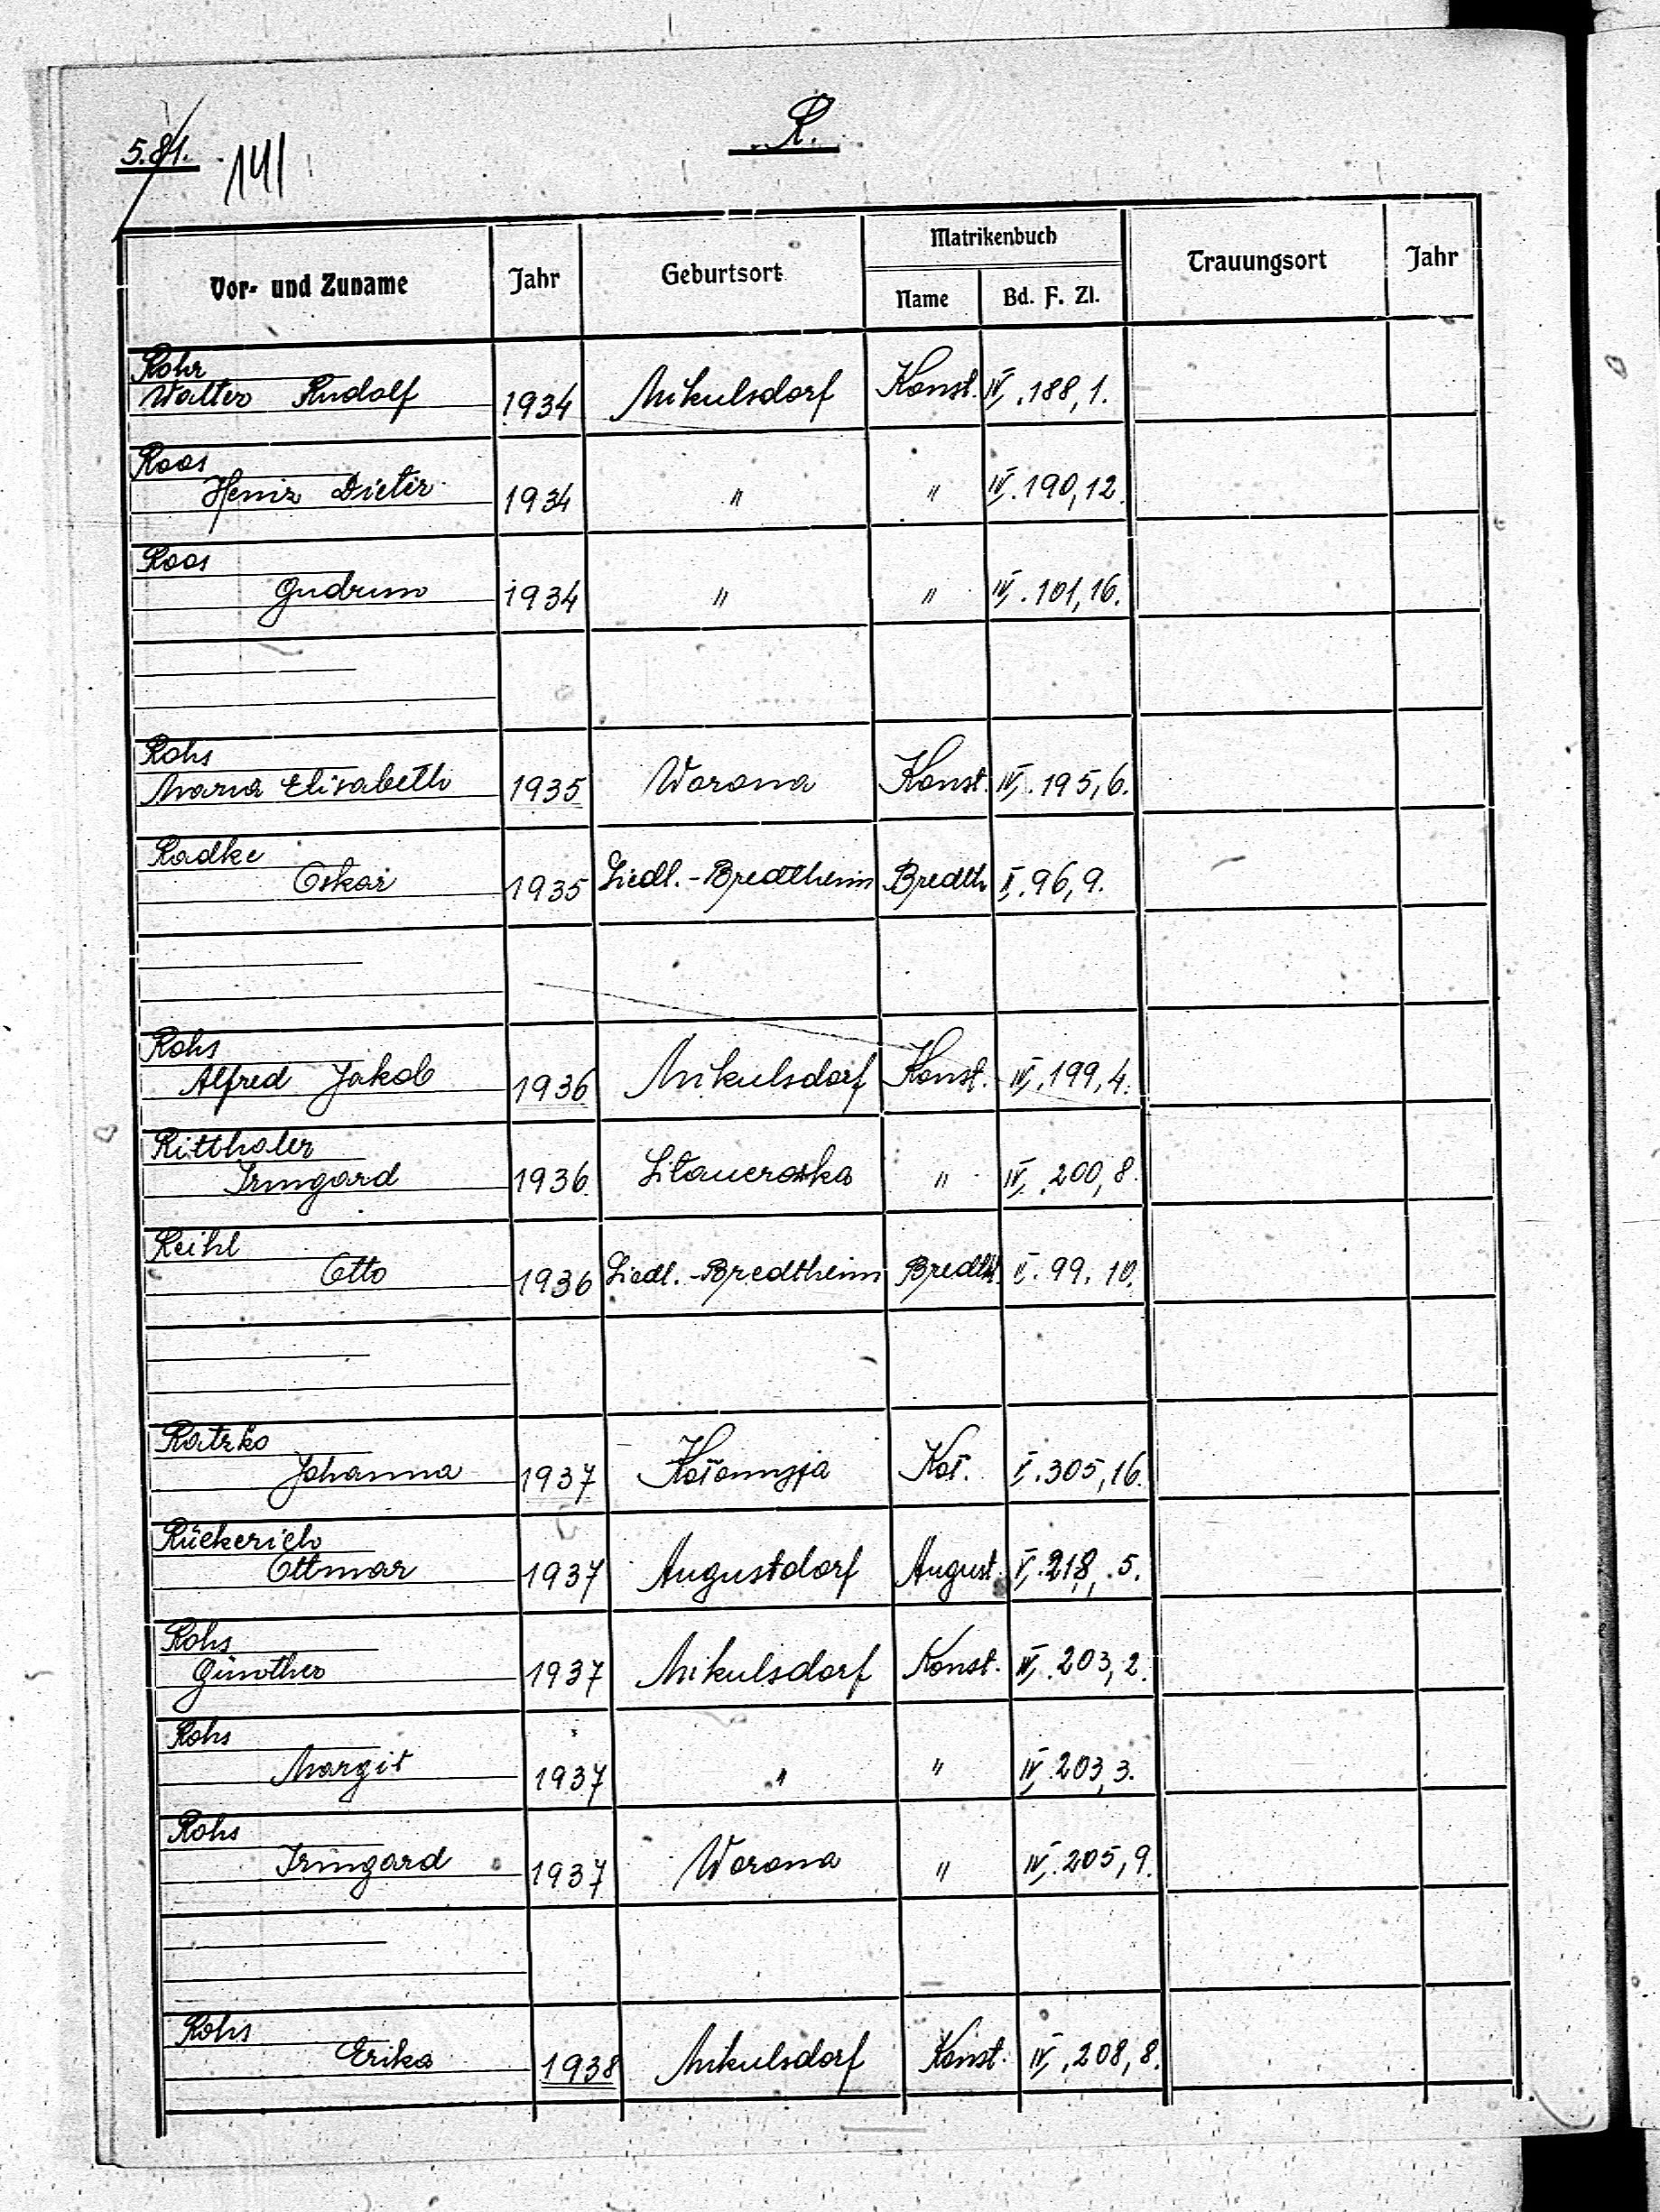 R.
5.81. 141
Vor- und Zuname Jahr Geburtsort Matrikenbuch Trauungsort Jahr
Name Bd. F. Zl.
Rohr
Walter Rudolf 1934 Mikulsdorf Konst. IV. 188, 1.
Roos
Heinz Dieter 1934 " " IV. 190, 12.
Roos
Gudrun 1934 " " IV. 101, 16.
Rohs
Maria Elisabeth 1935 Worona Konst. IV. 195, 6.
Radke
Oskar 1935 Siedl.-Bredtheim Bredth II. 96, 9.
Rohs
Alfred Jakob 1936 Mikulsdorf Konst. IV. 199, 4.
Ritthaler
Irmgard 1936 " IV. 200, 8.
Reihl
Otto 1936 Siedl.-Bredtheim Bredth. 99. 10.
Ratzko
Johanna 1937 Kołomyja Koł. 305, 16.
Rückerich
Ottmar 1937 Augustdorf August. V. 218, 5.
Rohs
Günther 1937 Mikulsdorf Konst. IV. 203, 2.
Rohs
Margit 1937 " " IV. 203, 3.
Rohs
Irmgard 1937 Worona " IV. 205, 9.
Rohs
Erika 1938 Mikulsdorf Konst. IV, 208, 8.